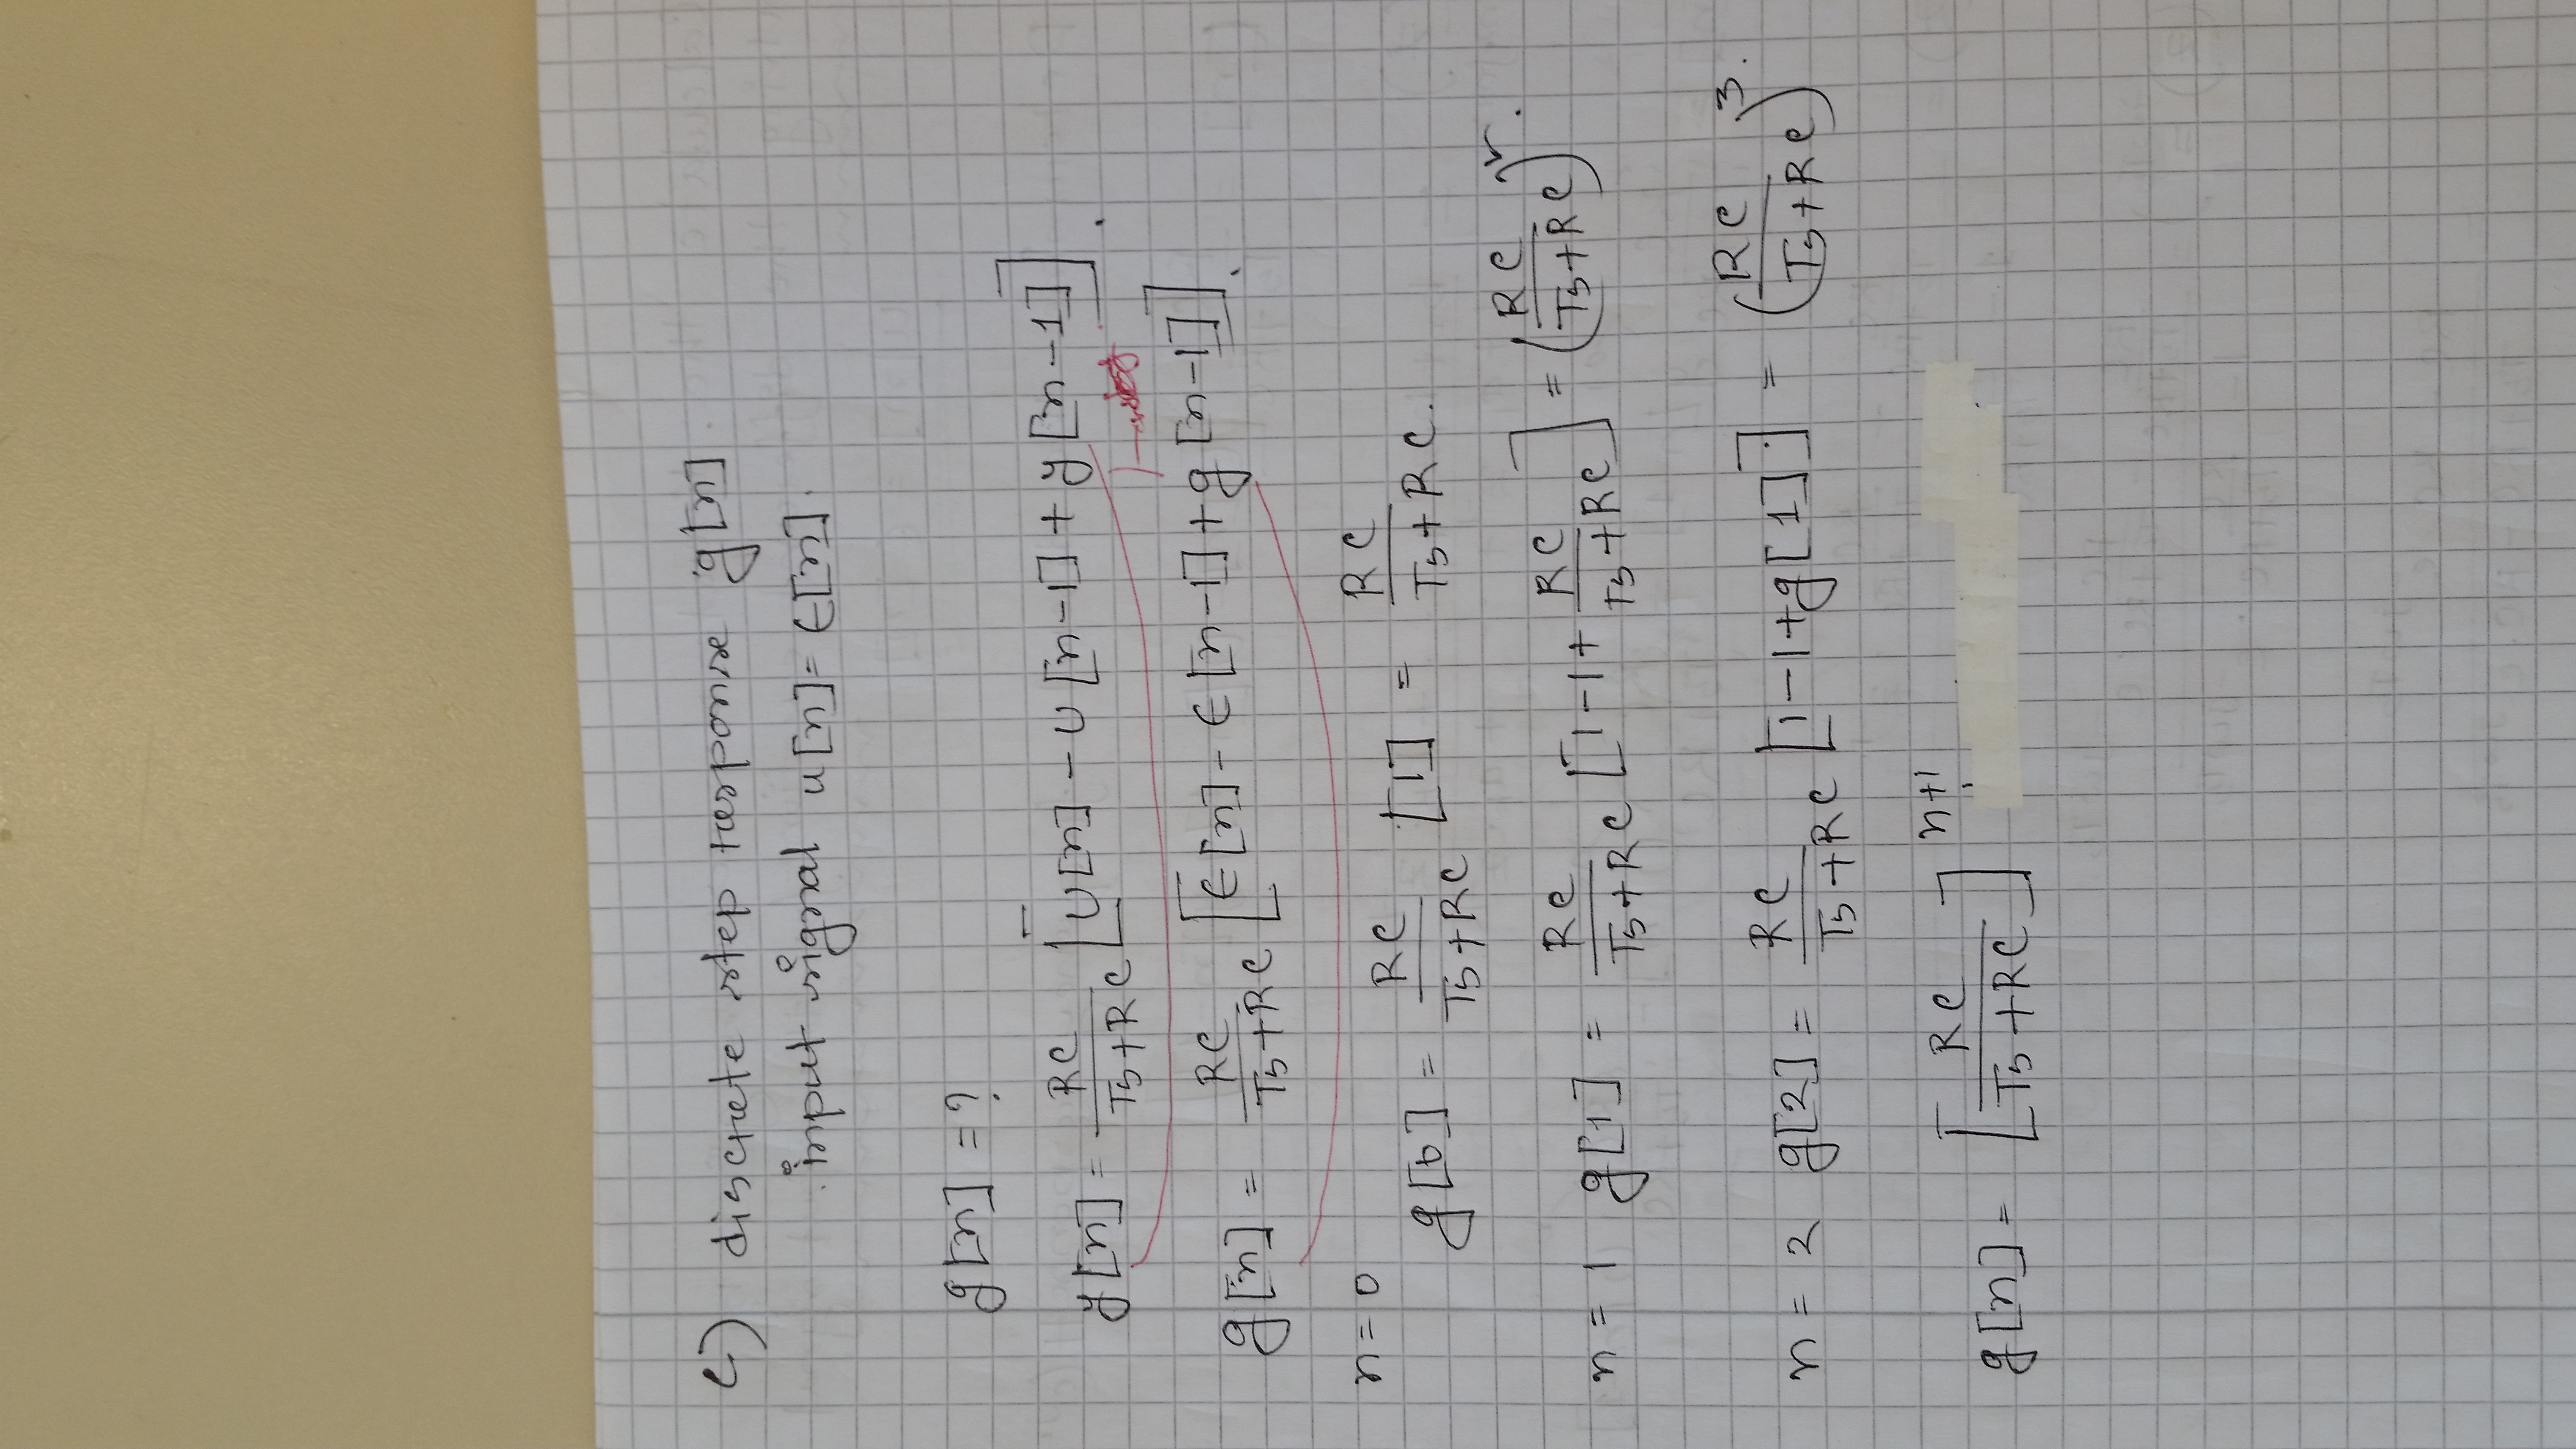 c) discrete step response g[n].
input signal u[n] = ϵ[n].
g[n] = ?
y[n] = RC/(Ts+RC) [U[n] - U[n-1] + y[n-1]].
g[n] = RC/(Ts+RC) [ϵ[n] - ϵ[n-1] + g[n-1]].
n = 0
g[0] = RC/(Ts+RC) [1] = RC/(Ts+RC).
n = 1 g[1] = RC/(Ts+RC) [1-1+ RC/(Ts+RC)] = (RC/(Ts+RC))^2.
n = 2 g[2] = RC/(Ts+RC) [1-1+g[1]] = (RC/(Ts+RC))^3.
g[n] = [RC/(Ts+RC)]^n+1